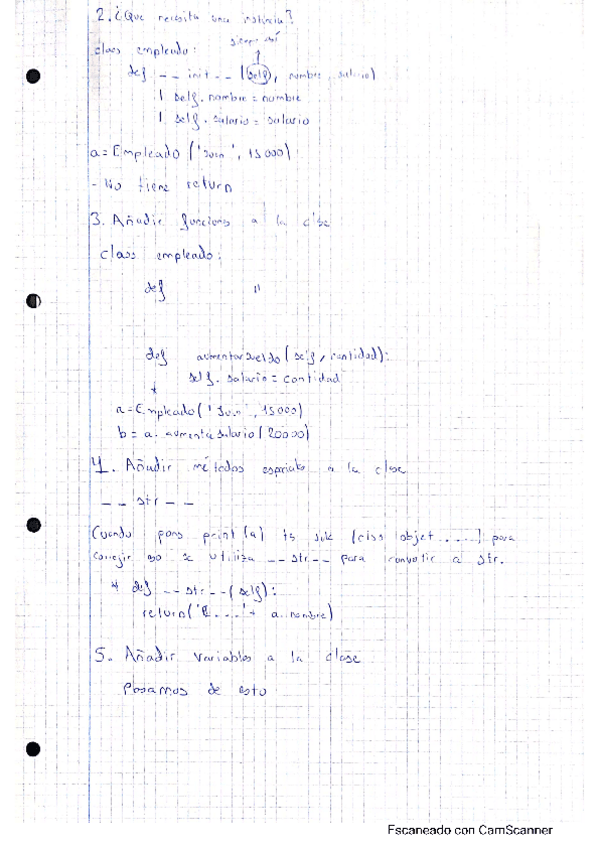 2. ¿Que necesita una instancia?
siempre así
class empleado:
def __init__(self, nombre, salario)
self.nombre = nombre
self.salario = salario
a = Empleado('Juan', 15000)
- No tiene return
3. Añadir funciones a la clase
class empleado:
def "
def aumentarsueldo(self, cantidad):
self.salario = cantidad
a = Empleado('Juan', 15000)
b = a.aumentasalario(20000)
4. Añadir métodos especiales a la clase
__str__
Cuando pones print(a) te sale (class objet ....) para
correjir eso se utiliza __str__ para convertir a str.
* def __str__(self):
return(' ....' + a.nombre)
5. Añadir variables a la clase
Pasamos de esto
Escaneado con CamScanner